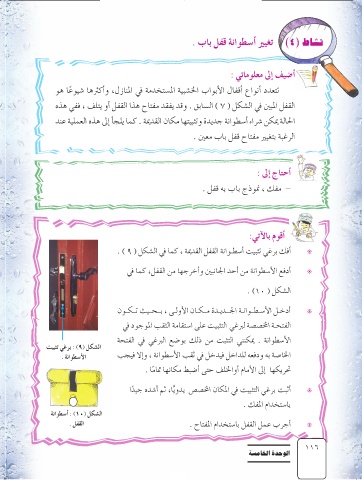 نشاط (٤) تغيير أسطوانة قفل باب .
أضيف إلى معلوماتي :
تتعدد أنواع أقفال الأبواب الخشبية المستخدمة في المنازل، وأكثرها شيوعًا هو
القفل المبين في الشكل ( ٧ ) السابق . وقد يفقد مفتاح هذا القفل أو يتلف ، ففي هذه
الحالة يمكن شراء أسطوانة جديدة وتثبيتها مكان القديمة . كما يلجأ إلى هذه العملية عند
الرغبة بتغيير مفتاح قفل باب معين .
أحتاج إلى :
– مفك ، نموذج باب به قفل .
أقوم بالآتي:
أفك برغي تثبيت أسطوانة القفل القديمة ، كما في الشكل ( ٩ ) .
أدفع الأسطوانة من أحد الجانبين وأخرجها من القفل، كما في
الشكل ( ١٠ ) .
أدخل الأسطوانة الجديدة مكان الأولى ، بحيث تكون
الفتحة المخصصة لبرغي التثبيت على استقامة الثقب الموجود في
الأسطوانة . يمكنني التثبت من ذلك بوضع البرغي في الفتحة
الخاصة به ودفعه للداخل فيدخل في ثقب الأسطوانة ، وإلا فيجب
تحريكها إلى الأمام أو الخلف حتى أضبط مكانها تمامًا .
أثبت برغي التثبيت في المكان المخصص يدويًا، ثم أشده جيدًا
باستخدام المفك .
أجرب عمل القفل باستخدام المفتاح .
الشكل (٩) : برغي تثبيت
الأسطوانة .
الشكل (١٠) : أسطوانة
القفل
الوحدة الخامسة
١١٦